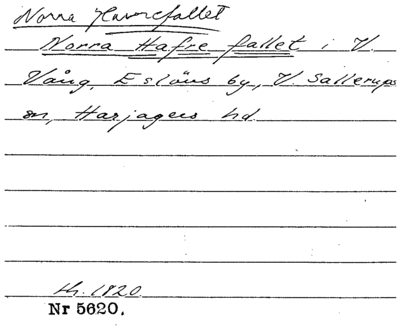 Norra Havrefallet
Norra Hafre fallet i V.
Vång, Eslövs by, V. Sallerups
sn, Harjagers hd.
1820
Nr 5620.